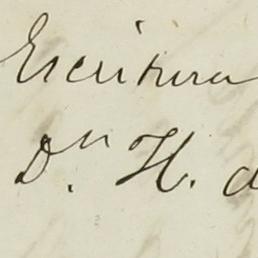 Escritura
Dn. H. d